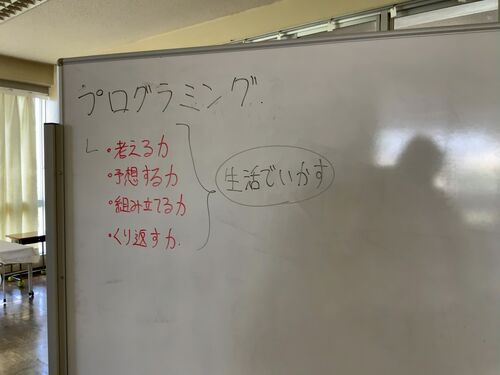 プログラミング
・考える力
・予想する力
・組み立てる力
・くり返す力.
生活でいかす